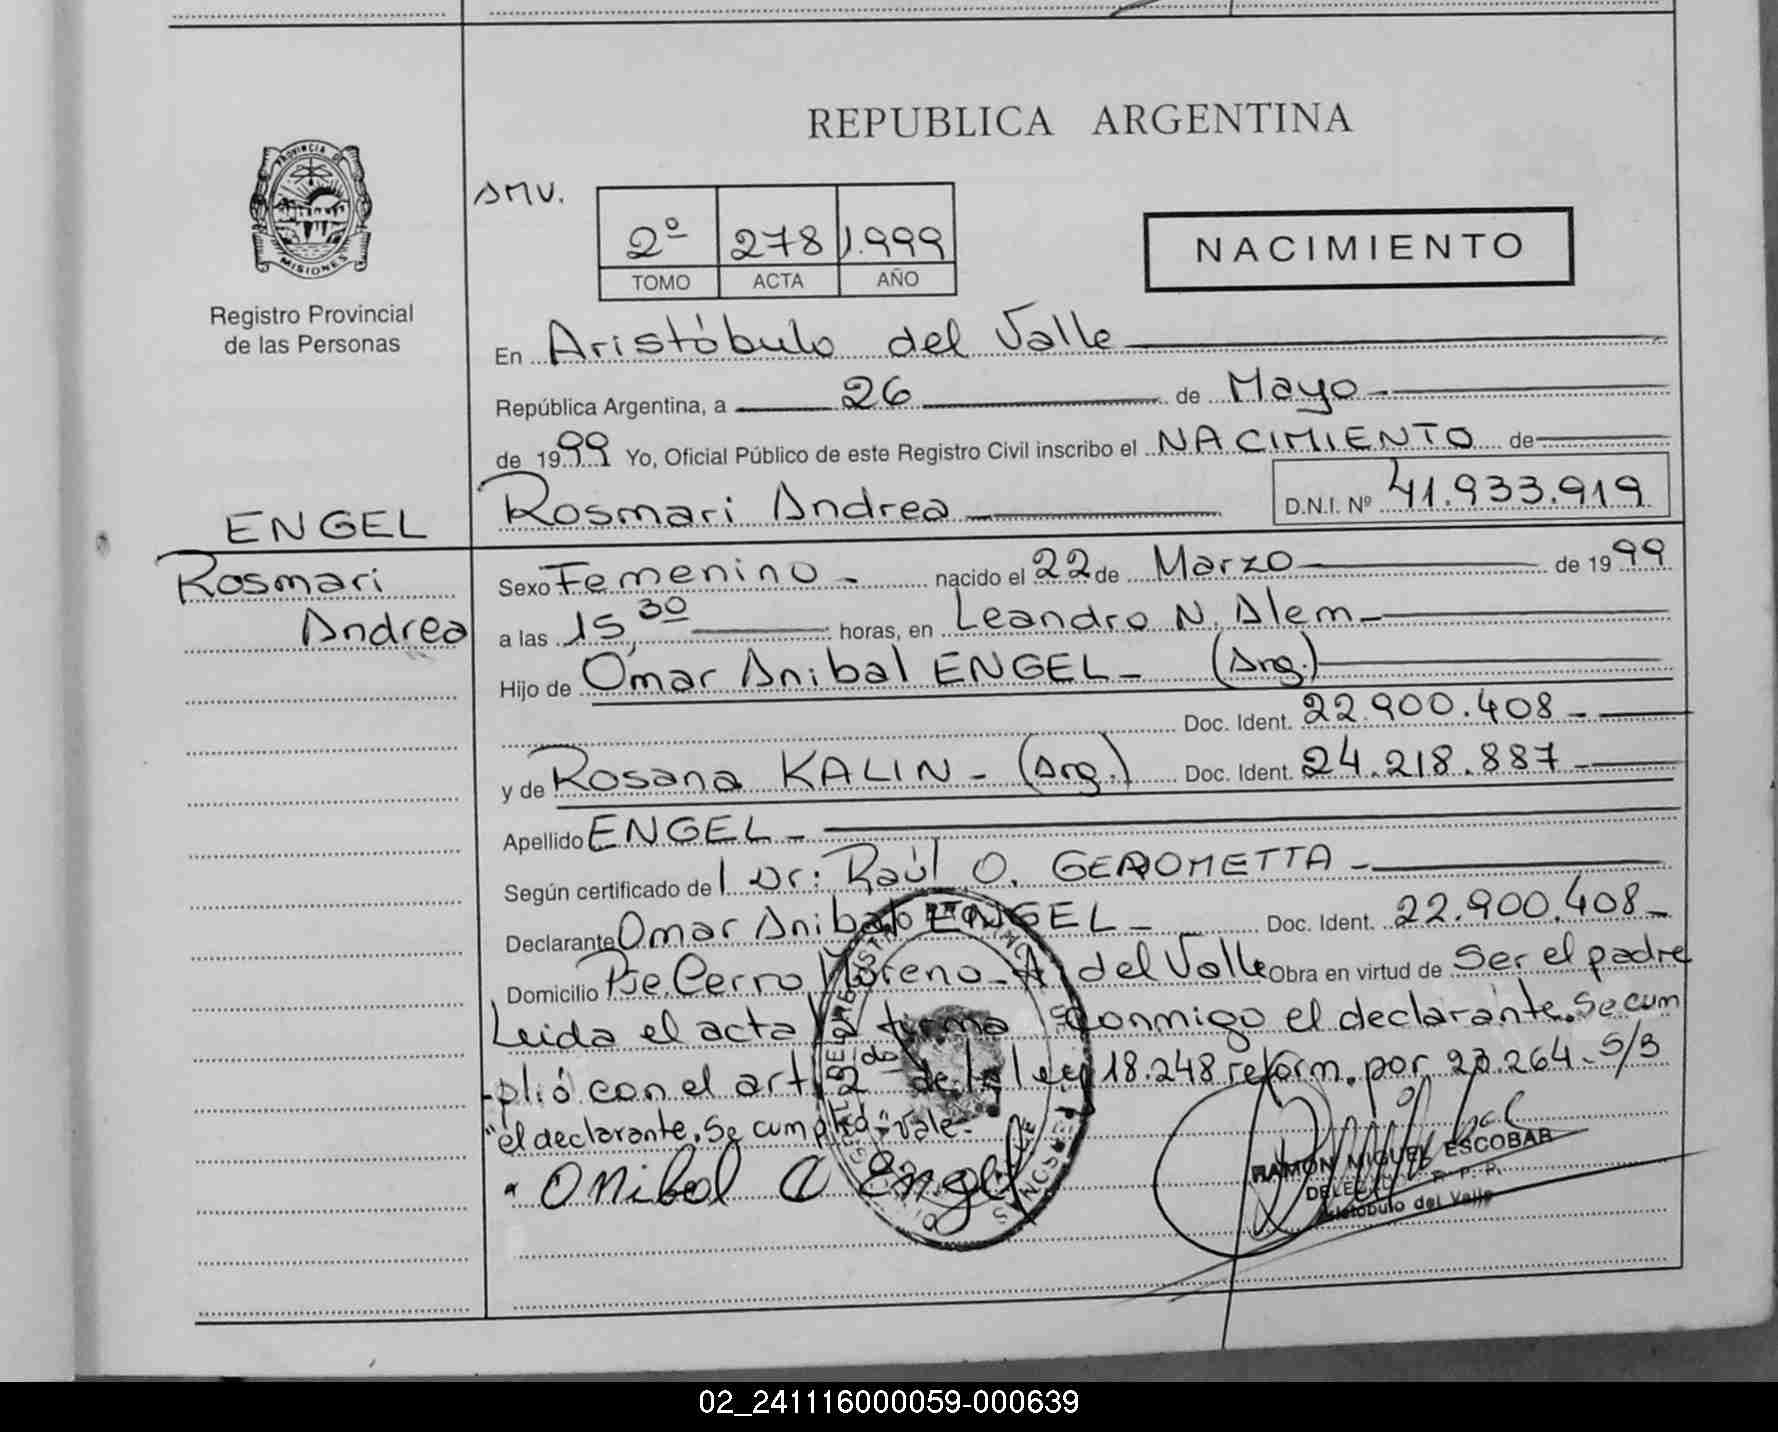 REPUBLICA ARGENTINA
PROVINCIA DE
MISIONES
Registro Provincial
de las Personas
SMV.
2º 278 1.999
TOMO ACTA AÑO
NACIMIENTO
En Aristóbulo del Valle
República Argentina, a 26 de Mayo
de 1999 Yo, Oficial Público de este Registro Civil inscribo el NACIMIENTO de
Rosmari Andrea D.N.I. Nº 41.933.919
ENGEL
Rosmari
Andrea
Sexo Femenino nacido el 22 de Marzo de 1999
a las 15,30 horas, en Leandro N. Alem
Hijo de Omar Anibal ENGEL (Arg.)
Doc. Ident. 22.900.408
y de Rosana KALIN (Arg.) Doc. Ident. 24.218.887
Apellido ENGEL
Según certificado del Dr: Raúl O. GEROMETTA
Declarante Omar Anibal ENGEL Doc. Ident. 22.900.408
Domicilio Pje. Cerro Moreno A. del Valle Obra en virtud de Ser el padre
Leida el acta la firma conmigo el declarante. Se cum
plió con el art. 2do de la ley 18.248 reform. por 23.264. S/B
"el declarante. Se cumplió" Vale.
Onibal O Engel
RAMON MIGUEL ESCOBAR
R. P. P.
Aristóbulo del Valle
02_241116000059-000639